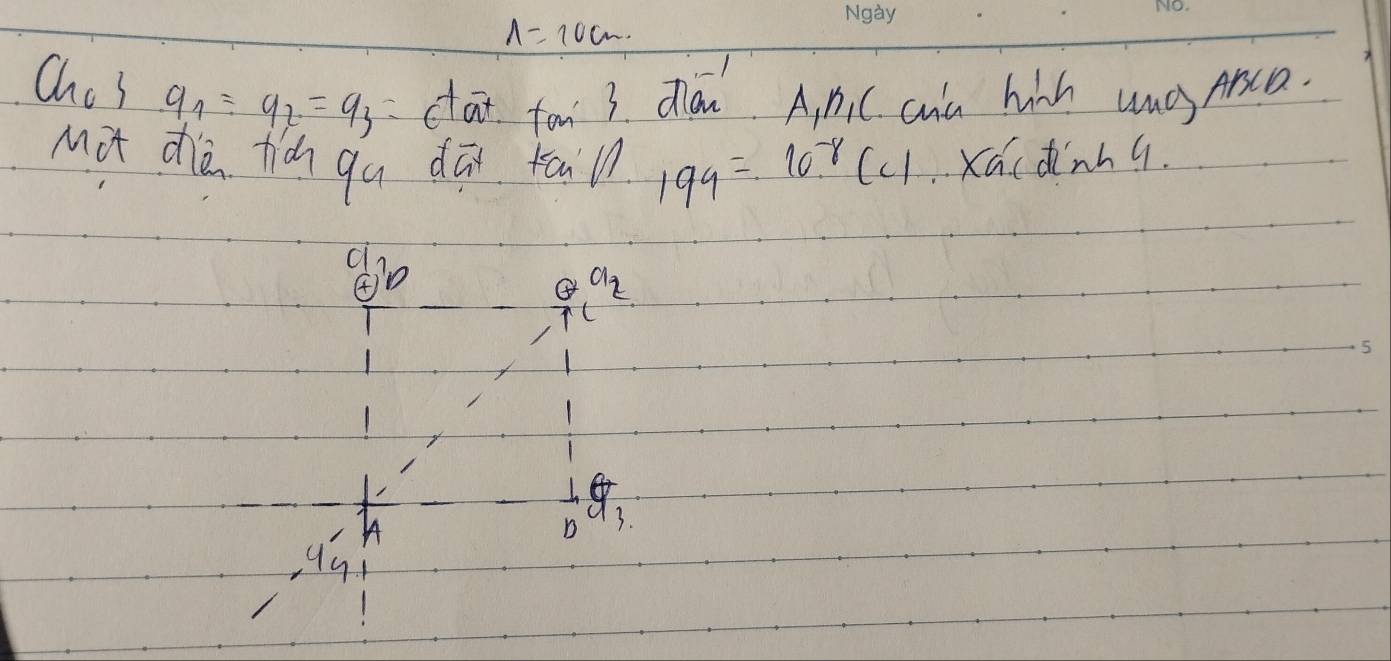 Ngày No.
1 = 10 cm.
Cho 3 q1 = q2 = q3 = đặt tại 3 điểm A, B, C của hình vuông ABCD.
Một điện tích q4 đặt tại D, q4 = 10^-8 (C). Xác định
q1 D
⊕ ⊕ q2
C
5
A B q3.
q4